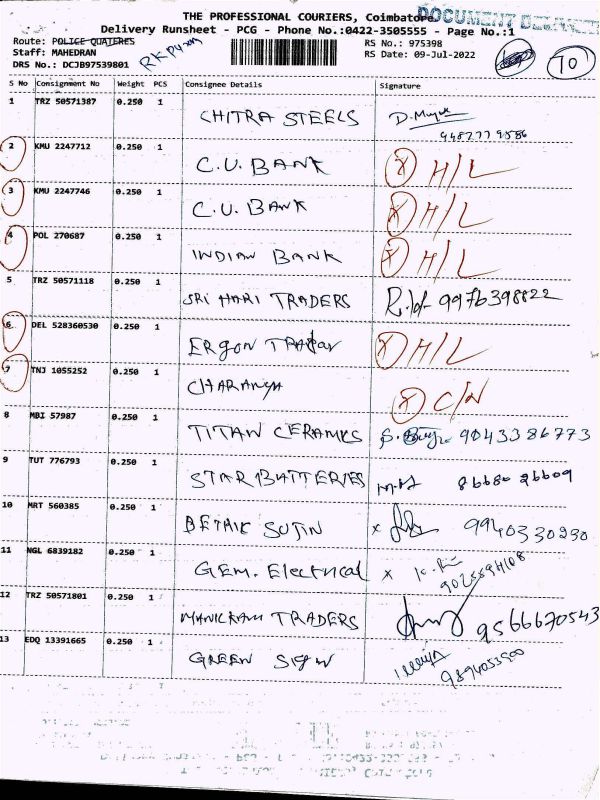 THE PROFESSIONAL COURIERS, Coimbatore
DOCUMENT
Delivery Runsheet - PCG - Phone No.:0422-3505555 - Page No.:1
Route: POLICE QUATERES
RS No.: 975398
Staff: MAHEDRAN
RS Date: 09-Jul-2022
DRS No.: DCJB97539801
70
S No Consignment No Weight PCS Consignee Details Signature
1 TRZ 50571387 0.250 1 CHITRA STEELS
2 KMU 2247712 0.250 1 C.U. BANK X H/L
3 KMU 2247746 0.250 1 C.U. BANK X H/L
4 POL 270687 0.250 1 INDIAN BANK X H/L
5 TRZ 50571118 0.250 1 SRI HARI TRADERS 9976398822
6 DEL 528360530 0.250 1 ERGON X H/L
7 TNJ 1055252 0.250 1 CHARANYA X C/N
8 MBI 57987 0.250 1 TITAN CERAMKS 9043386773
9 TUT 776793 0.250 1 STAR BATTERIES 86680 26609
10 MRT 560385 0.250 1 x 9940330230
11 NGL 6839182 0.250 1 GEM. Electrical x
12 TRZ 50571801 0.250 1 TRADERS 9566670543
13 EDQ 13391665 0.250 1 GREEN SIGN